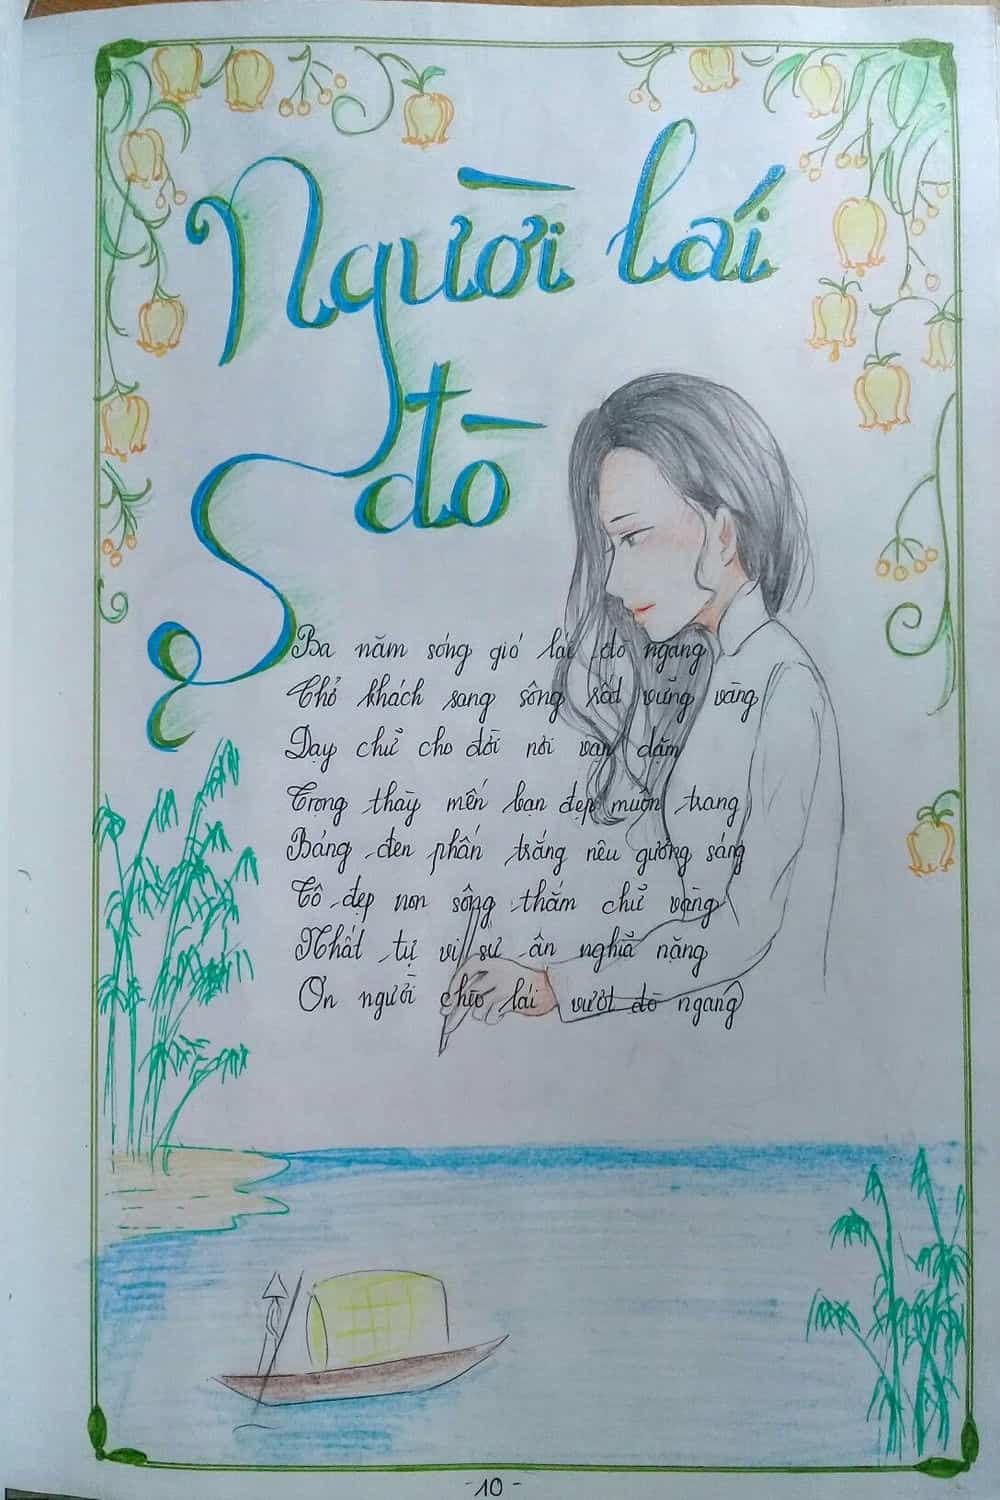 Người lái
đò
Ba năm sóng gió lái đò ngang
Chở khách sang sông rất vững vàng
Dạy chữ cho đời nơi vạn dặm
Trọng thầy mến bạn đẹp muôn trang
Bảng đen phấn trắng nêu gương sáng
Tô đẹp non sông thắm chữ vàng
Nhất tự vi sư ân nghĩa nặng
Ơn người chịu lái vượt đò ngang
- 10 -